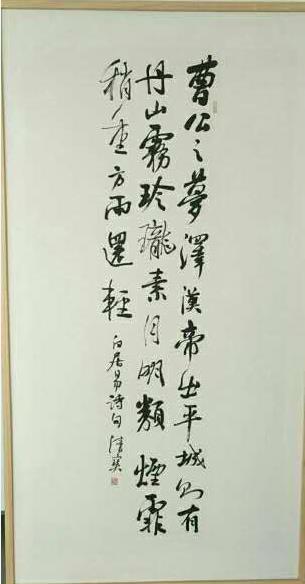 曹公之夢澤漢帝出平城則有
丹山霧玲瓏素月明類煙霏
稍重方雨還輕
白居易詩句